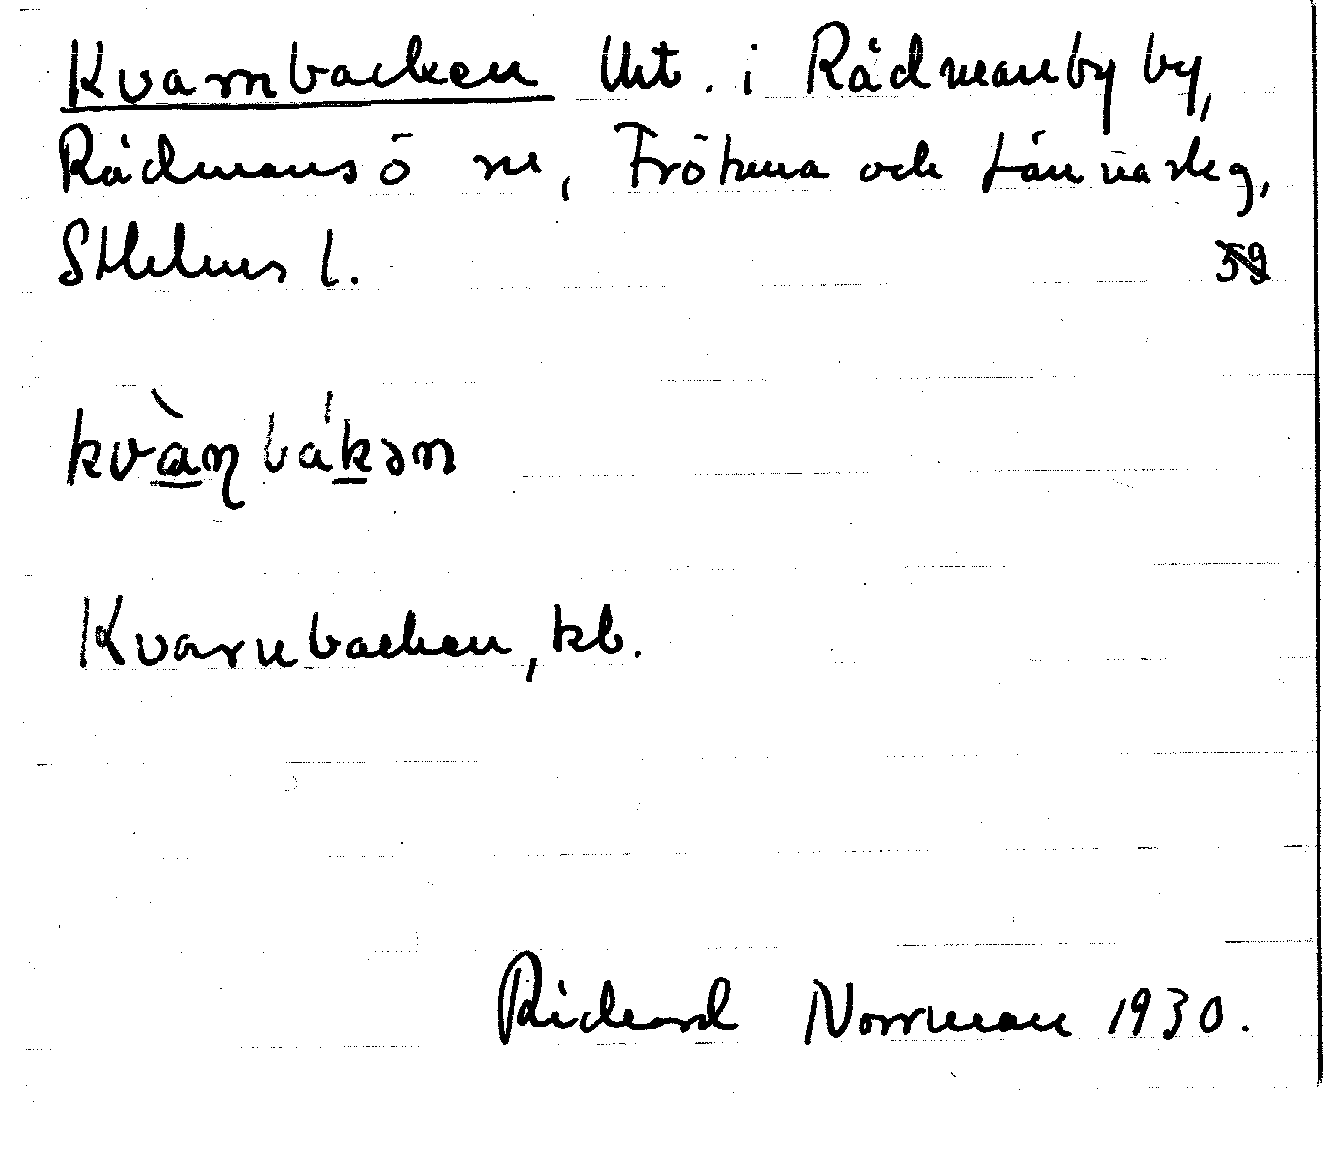 Kvarnbacken Uht. i Rådmanby by,
Rådmansö sn, Frötuna och Länna slg,
Sthlms l.
kvàɳbákən
Kvarnbacken, kb.
Richard Norrman 1930.